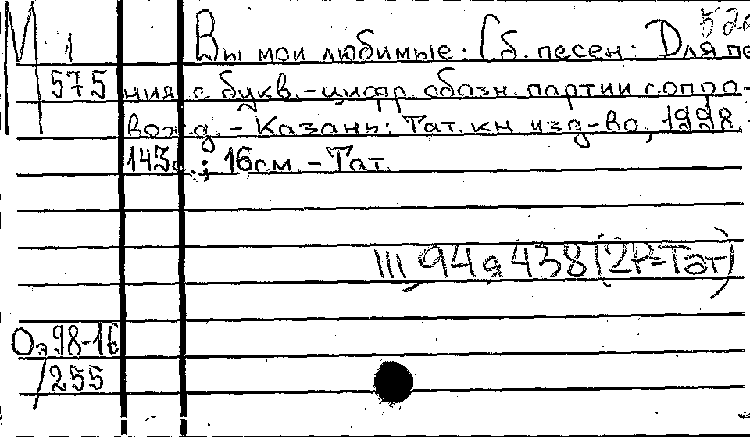 М 1
575
Вы мои любимые: Сб. песен: Для пе
ния с букв.-цифр. обозн. партии сопро-
вожд. - Казань: Тат. кн. изд-во, 1998. -
143с.; 16см. - Тат.
III 94 438(2Р=Тат)
Оэ98-16
/255